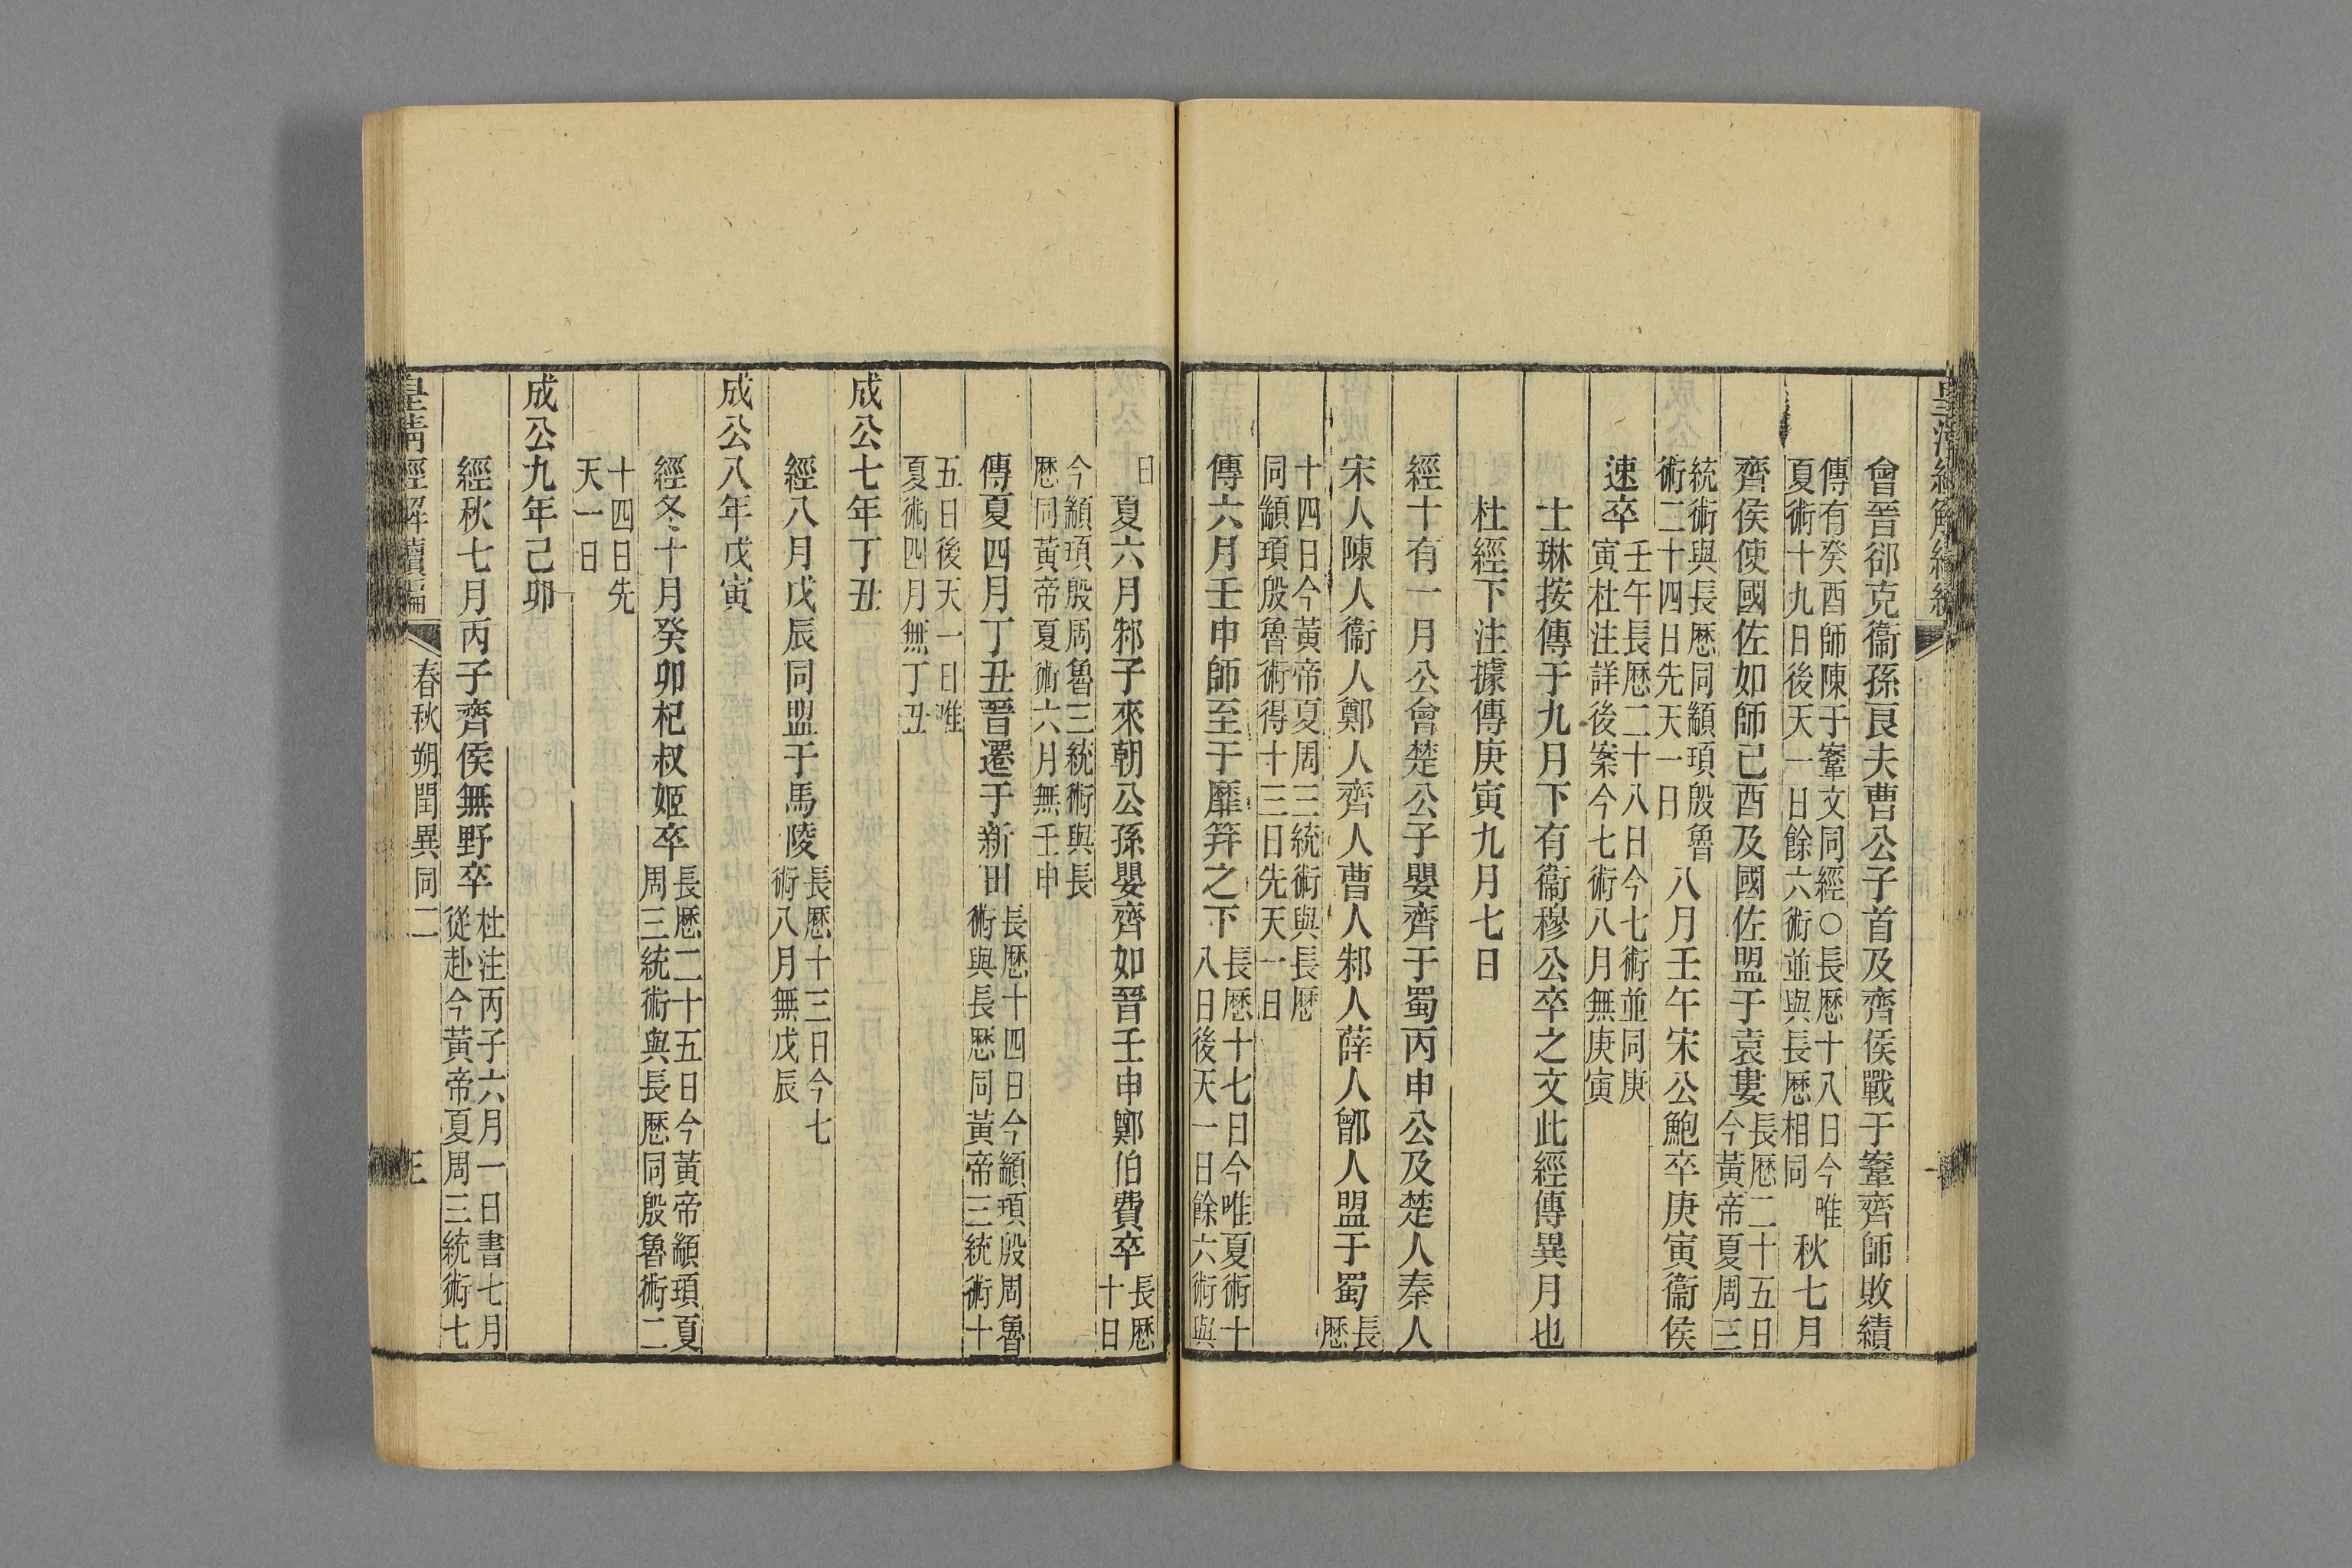 會晉郤克衞孫良夫曹公子首及齊侯戰于鞌齊師敗績
傳有癸酉師陳于鞌文同經○長厯十八日今唯
夏術十九日後天一日餘六術並與長厯相同
秋七月
齊侯使國佐如師已酉及國佐盟于袁婁
長厯二十五日
今黃帝夏周三
統術與長厯同顓頊殷魯
術二十四日先天一日
八月壬午宋公鮑卒庚寅衞侯
速卒
壬午長厯二十八日今七術並同庚
寅杜注詳後案今七術八月無庚寅
士琳按傳于九月下有衞穆公卒之文此經傳異月也
杜經下注據傳庚寅九月七日
經十有一月公會楚公子嬰齊于蜀丙申公及楚人秦人
宋人陳人衞人鄭人齊人曹人邾人薛人鄫人盟于蜀
長
厯
十四日今黃帝夏周三統術與長厯
同顓頊殷魯術得十三日先天一日
傳六月壬申師至于靡笄之下
長厯十七日今唯夏術十
八日後天一日餘六術與
日
夏六月邾子來朝公孫嬰齊如晉壬申鄭伯費卒
長厯
十日
今顓頊殷周魯三統術與長
厯同黃帝夏術六月無壬申
傳夏四月丁丑晉遷于新田
長厯十四日今顓頊殷周魯
術與長厯同黃帝三統術十
五日後天一日唯
夏術四月無丁丑
成公七年丁丑
經八月戊辰同盟于馬陵
長厯十三日今七
術八月無戊辰
成公八年戊寅
經冬十月癸卯杞叔姬卒
長厯二十五日今黃帝顓頊夏
周三統術與長厯同殷魯術二
十四日先
天一日
成公九年己卯
經秋七月丙子齊侯無野卒
杜注丙子六月一日書七月
從赴今黃帝夏周三統術七
皇清經解續編
春秋朔閏異同二